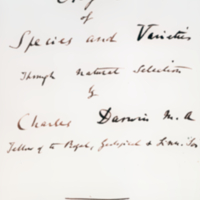 of
Species and Varieties
Through natural Selection
by
Charles Darwin M.A
Fellow of the Royal, Geological & Linn. Soc